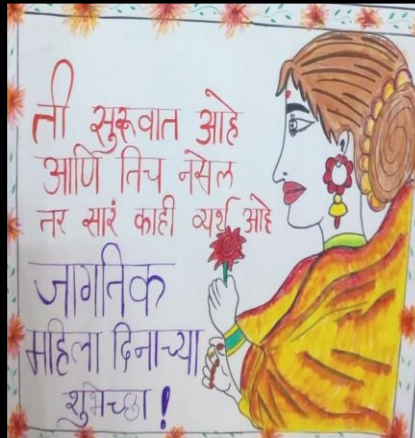 ती सुरूवात आहे
आणि तिच नसेल
तर सारं काही व्यर्थ आहे
जागतिक
महिला दिनाच्या
शुभेच्छा !